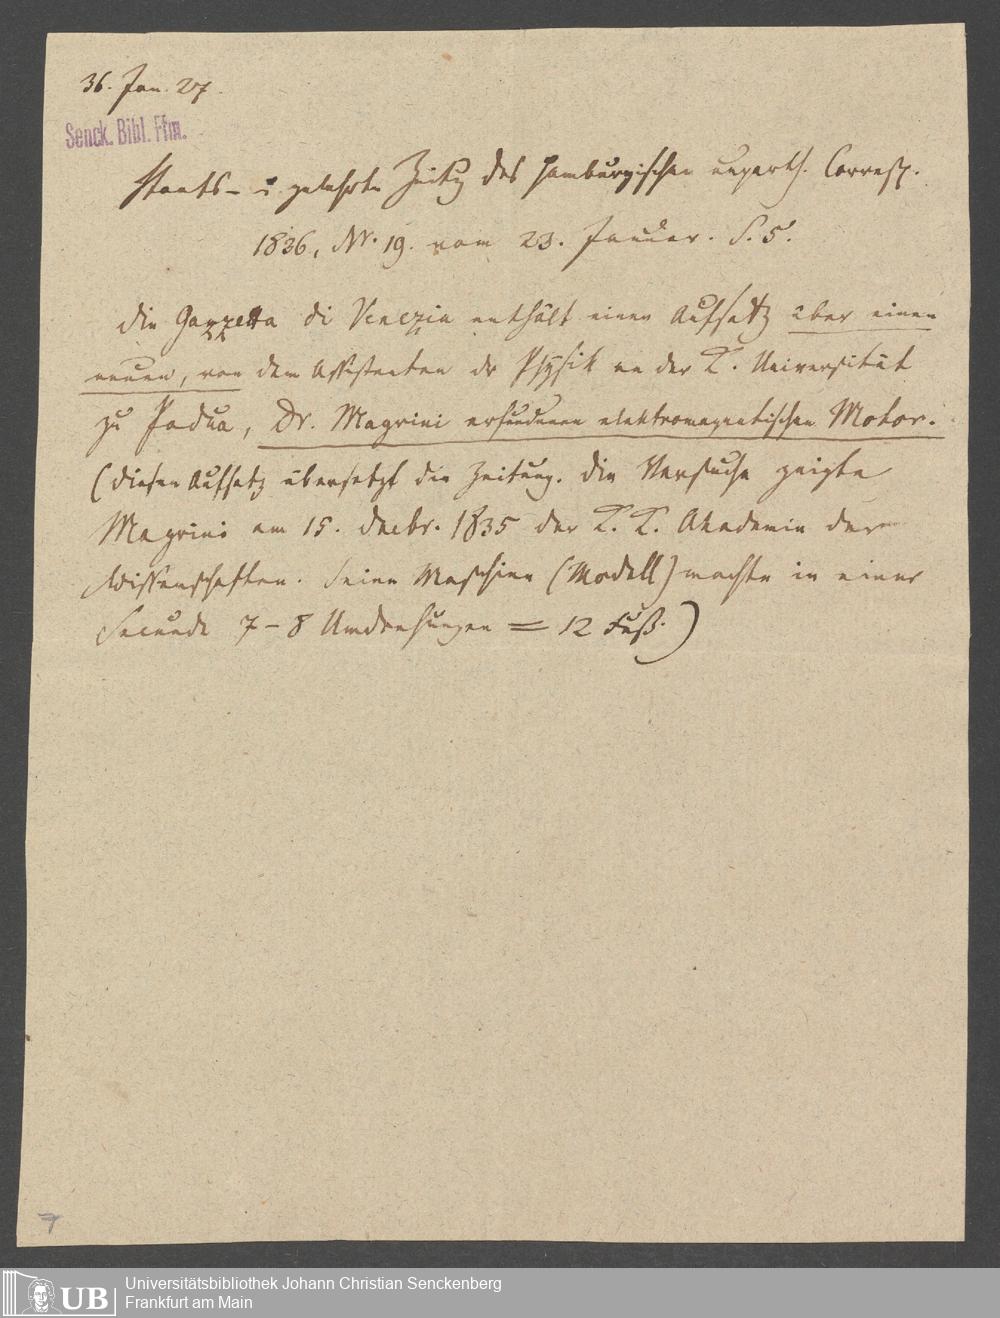 36. Jan. 27.
Senck. Bibl. Ffm.
Staats- u gelehrte Zeitg des Hamburgischen unparth. Corresp.
1836, Nr. 19. vom 23. Januar. S. 5.
Die Gazzetta di Venezia enthält einen Aufsatz über einen
neuen, von dem Assistenten der Physik an der K. Universität
zu Padua, Dr. Magrini erfundenen elektromagnetischen Motor.
(Diesen Aufsatz übersetzt die Zeitung. Die Versuche zeigte
Magrini am 15. Decbr. 1835 der K. K. Akademie der
Wissenschaften. Seine Maschine (Modell) machte in einer
Secunde 7-8 Umdrehungen = 12 Fuß.)
7
UB
Universitätsbibliothek Johann Christian Senckenberg
Frankfurt am Main